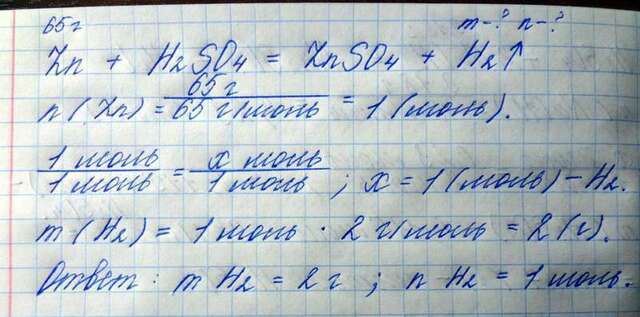 65 г m - ? n - ?
Zn + H2SO4 = ZnSO4 + H2↑
n (Zn) = 65 г / 65 г/моль = 1 (моль).
1 моль / 1 моль = x моль / 1 моль ; x = 1 (моль) - H2.
m (H2) = 1 моль · 2 г/моль = 2 (г).
Ответ : m H2 = 2 г ; n H2 = 1 моль.